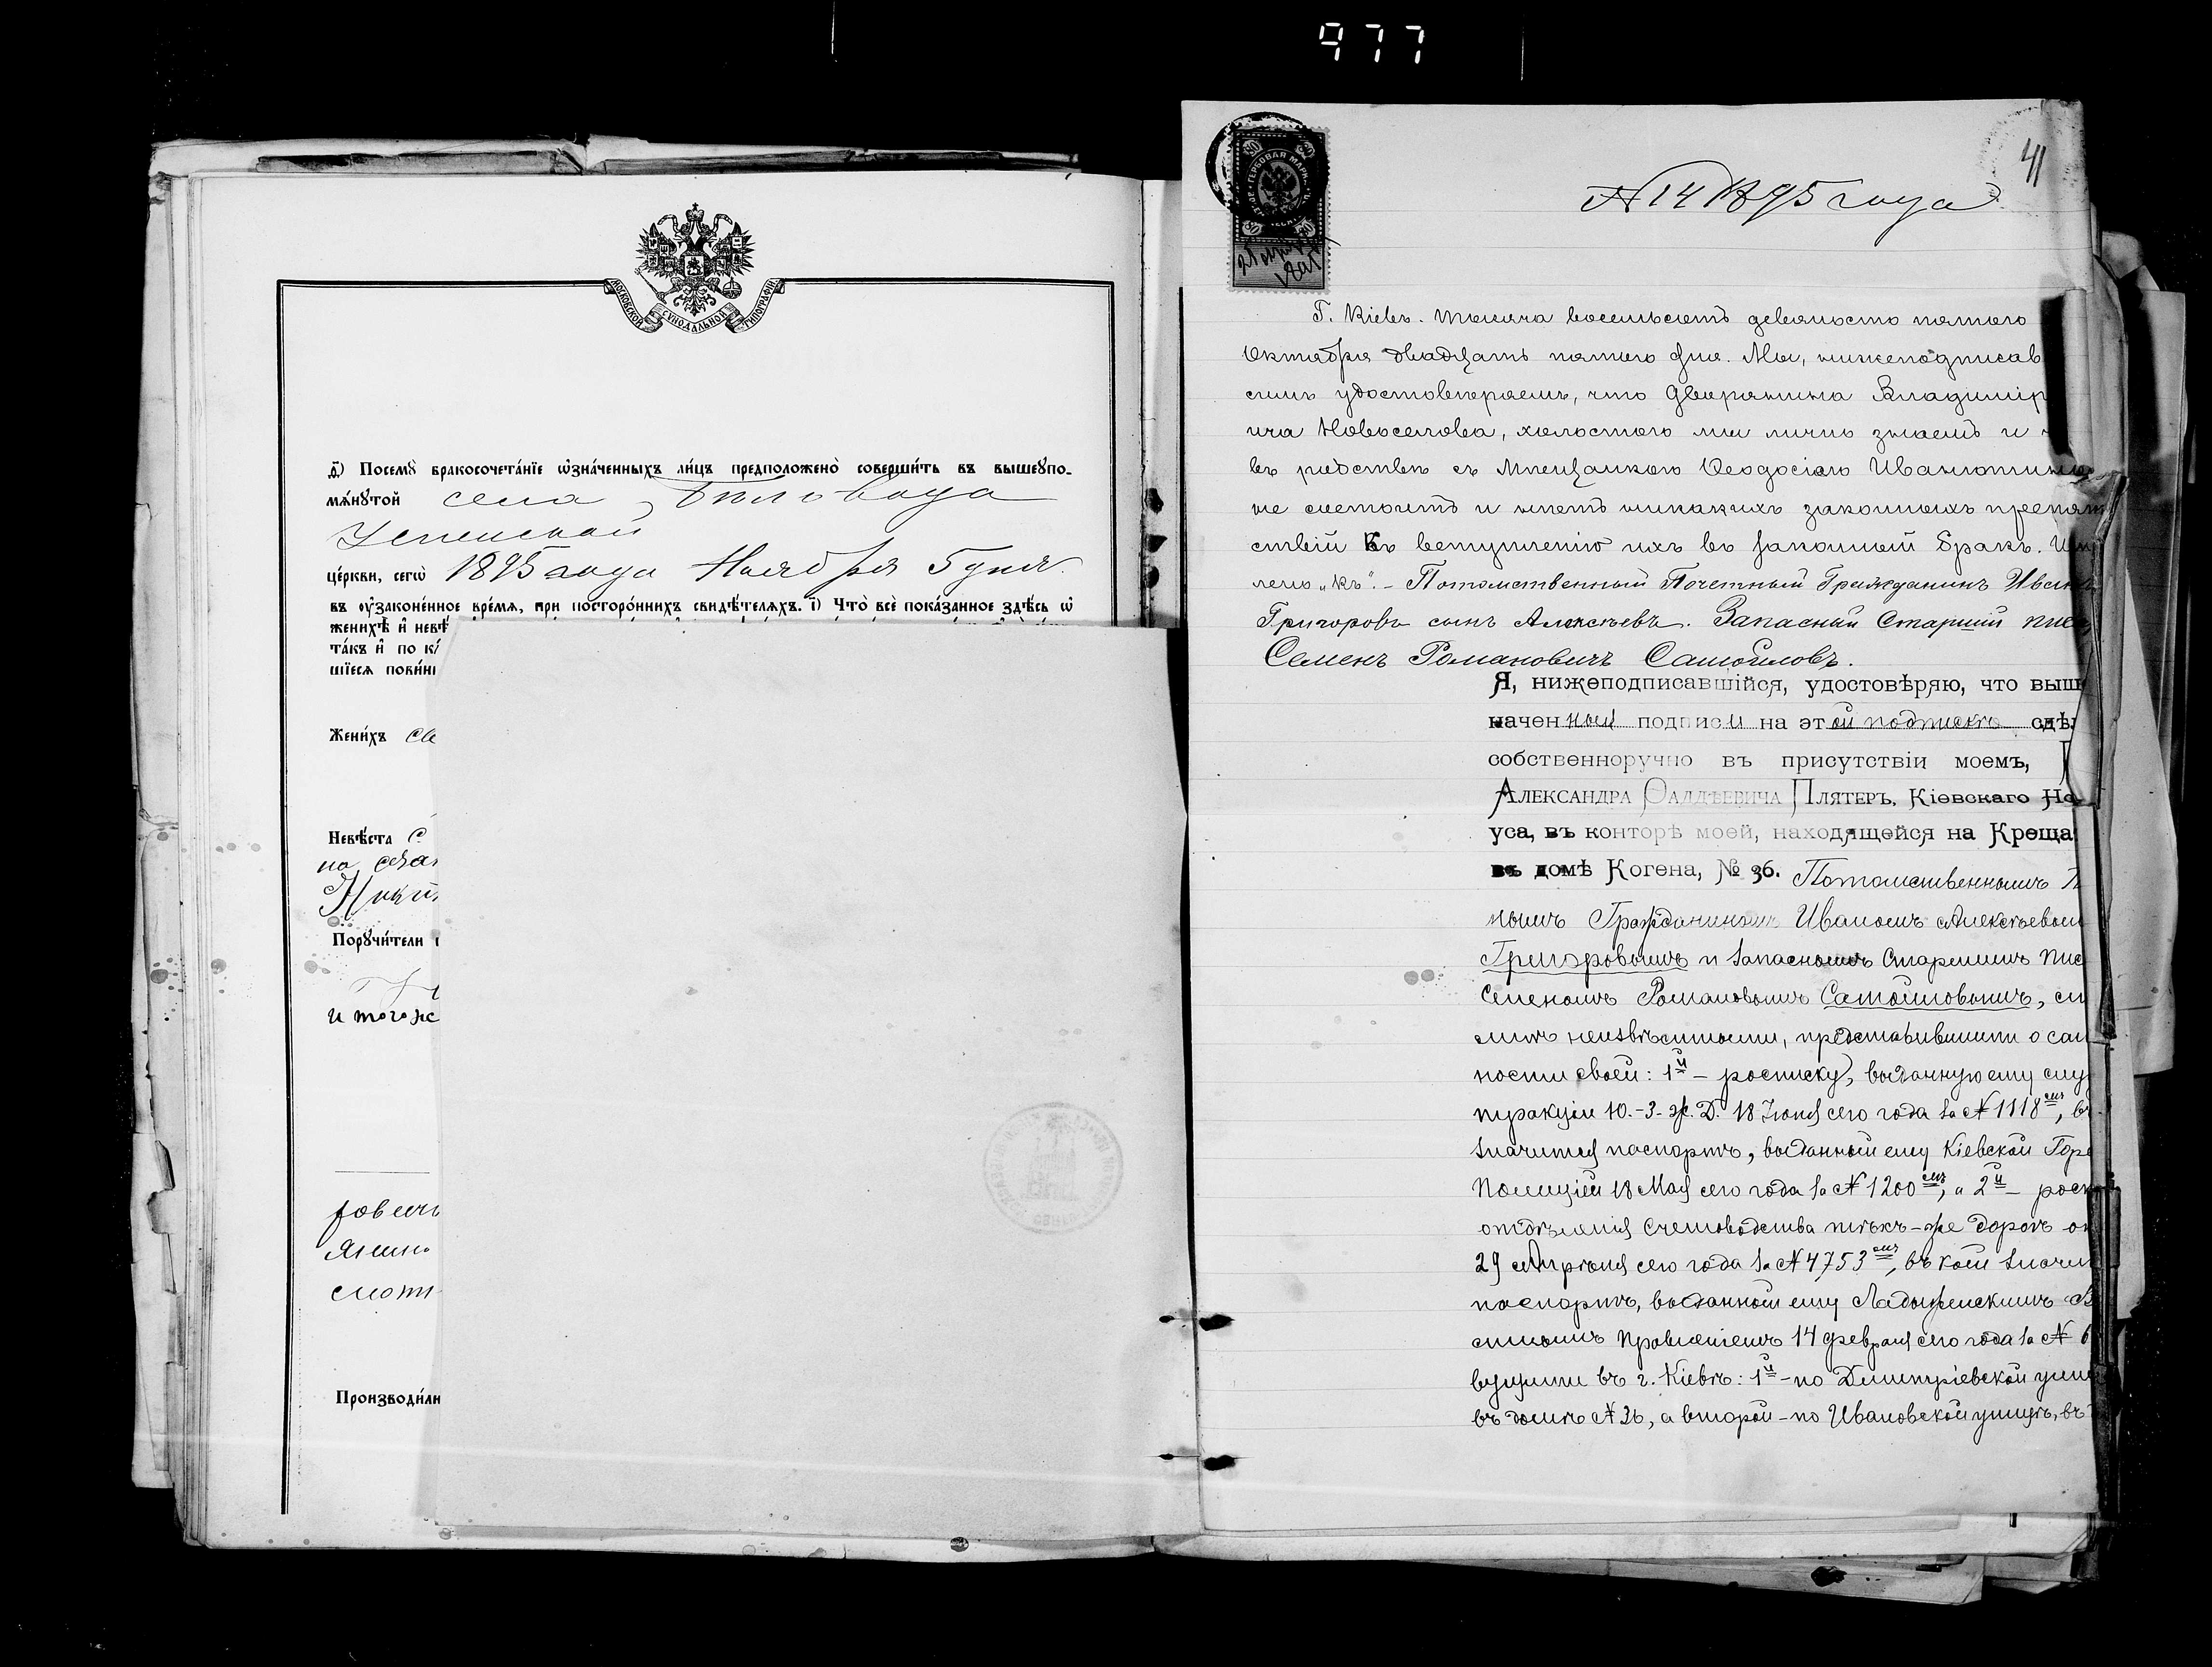 977
МОСКОВСКОЙ СѴНОДАЛЬНОЙ ТИПОГРАФІИ.
д҃) Посемꙋ̀ бракосочета́нїе ѡ҆зна́ченныхъ ли́цъ предположено̀ соверши́ть въ вышеꙋпо-
мѧ́нꙋтой села Биловода
Успенской
це́ркви, сегѡ̀ 1895 года Ноября 5 дня
въ ᲂу҆зако́ненное вре́мѧ, при посторо́ннихъ свидѣ́телѧхъ. і҃) Что̀ всѐ пока́занное здѣ́сь ѡ҆
женихѣ̀ и҆ невѣ
та́къ и҆ по к
шїесѧ пови́н
Жени́хъ
Невѣ́ста
на
Порꙋчи́тели
и того же
Производи́ли
41
N 14 1895 года
ГЕРБОВАЯ МАРКА
80
Г. Кіевъ. Тысяча восемьсотъ девяносто пятого
Октября двадцать пятого дня. Мы, нижеподписав
симъ удостовѣряемъ, что Дворянина Владимір
ича Новоселова, холостого мы лично знаемъ и
въ родствѣ съ Мѣщанкою Ѳеодосіею Иванотино
не состоитъ и нѣтъ никакихъ законныхъ препят
ствій къ вступленію ихъ въ законный бракъ.
лено „къ". – Потомственный Почетный Гражданинъ Иванъ
Григоровъ сынъ Алексѣевъ. Запасный Старшій пис
Семенъ Романовичъ Самойловъ.
Я, нижеподписавшійся, удостовѣряю, что выш
наченныя подписи на этой подпискѣ сдѣ
собственноручно въ присутствіи моемъ,
Александра Фаддѣевича Плятеръ, Кіевскаго Но
уса, въ конторѣ моей, находящейся на Креща
въ домѣ Когена, № 36. Потомственнымъ П
нымъ Гражданиномъ Иваномъ Алексѣевом
Григоровымъ и запаснымъ Старшимъ пис
Семеномъ Романовымъ Самойловымъ,
мнѣ неизвѣстными, представившими о сам
ности своей: 1й – росписку, выданную ему слу
тракціи Ю.-З. ж. Д. 18 Іюня сего года за N 1118мъ, въ
значится паспортъ, выданный ему Кіевской Горо
Полиціей 18 Мая сего года за N 1200мъ, а 2й – роск
отдѣленія Счетоводства тѣхъ-же дорогъ от
29 Апрѣля сего года за N 4753мъ, въ коей значит
паспортъ, выданный ему Ладыженскимъ В
стнымъ Правленіемъ 14 февраля сего года за N 6
вущими въ г. Кіевѣ: 1й – по Дмитріевской ули
въ домѣ N 26, а второй – по Ивановской улицѣ, въ